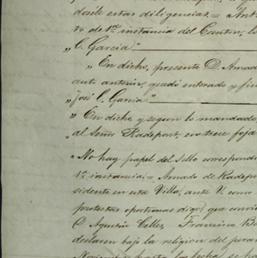 desde estas diligencias. = Ant
to de 1ª instancia del Canton, lo
"C. Garcia."
"En dicho, presente D. Amad
auto anterior, quedó enterado y fir
"José C. Garcia"
"En dicho y segun lo mandado
al Señor Radepont, en trece foja
"No hay papel del sello correspond
1ª instancia: = Amado de Radep
sidente en esta Villa, ante V. como
protestas oportunas digo: que convie
D. Agustin Telles, Francisco B
declaren bajo la religion del jura